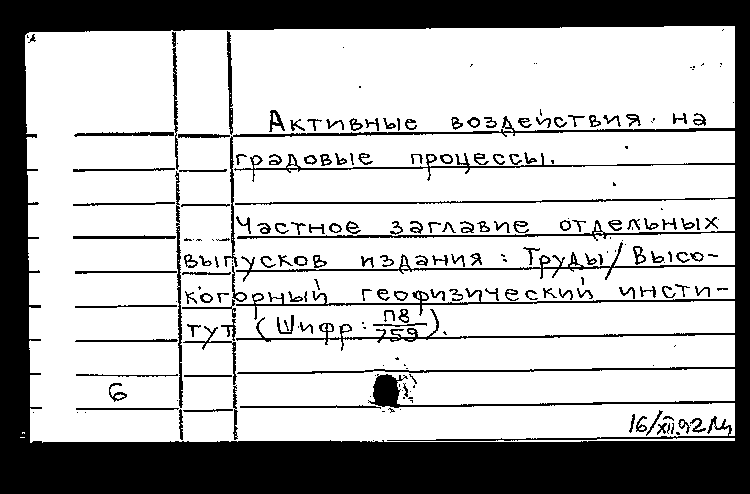 Активные воздействия на
градовые процессы.
Частное заглавие отдельных
выпусков издания: Труды/Высо-
когорный геофизический инсти-
тут (Шифр: П8/759).
6
16/XII.92